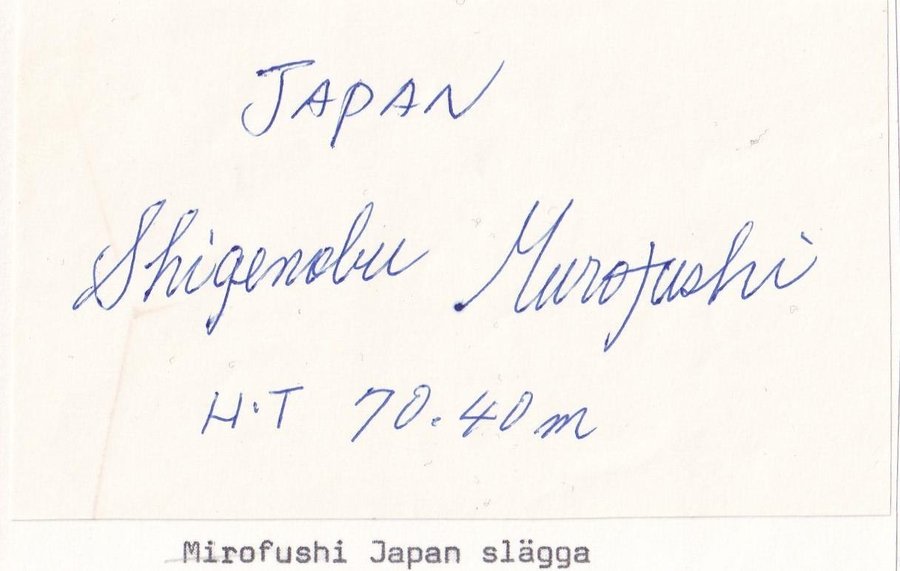 JAPAN
Shigenobu Murofushi
H.T 70.40m
Mirofushi Japan slägga